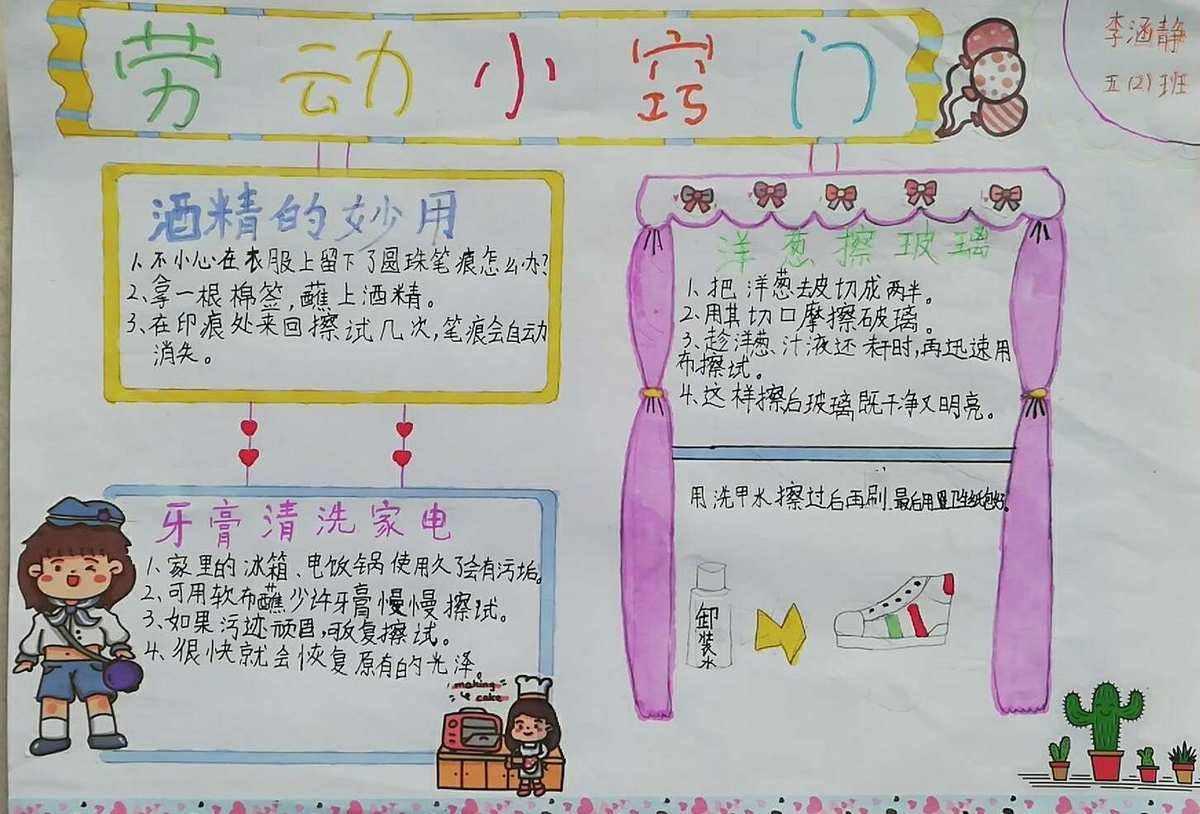 劳动小窍门
李涵静
五(2)班
酒精的妙用
1、不小心在衣服上留下了圆珠笔痕怎么办?
2、拿一根棉签,蘸上酒精。
3、在印痕处来回擦试几次,笔痕会自动
消失。
牙膏清洗家电
1、家里的冰箱、电饭锅使用久了会有污垢。
2、可用软布蘸少许牙膏慢慢擦试。
3、如果污迹顽固,可反复擦试。
4、很快就会恢复原有的光泽。
making
cake
洋葱擦玻璃
1、把洋葱去皮切成两半。
2、用其切口摩擦玻璃。
3、趁洋葱、汁液还未干时,再迅速用
布擦拭。
4、这样擦后玻璃既干净又明亮。
用洗甲水擦过后再刷.最后用卫生纸包好。
卸装水